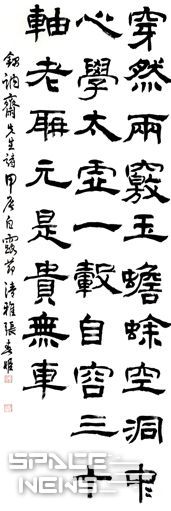 穿然兩竅玉蟾蜍空洞中
心學太虛一轂自容三十
軸老聃元是貴無車
齋先生詩甲辰白露節清雅張春姬
SPACE
NEWS